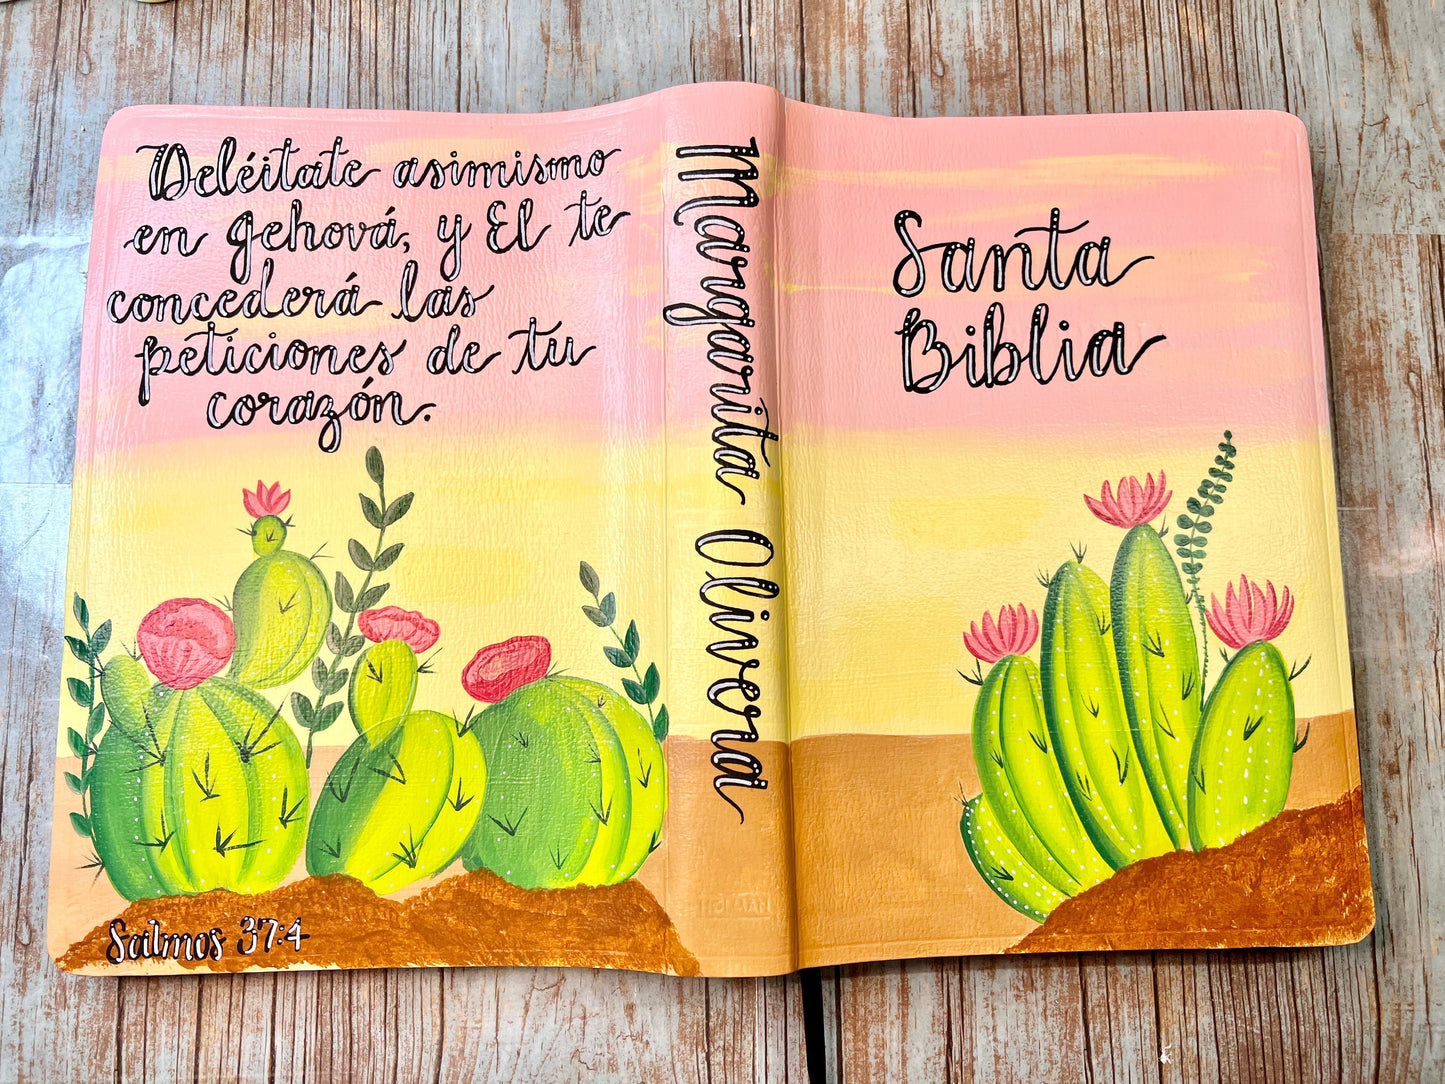 Deléitate asimismo
en Jehová, y El te
concederá las
peticiones de tu
corazón.
Salmos 37:4
Margarita Olivera
Santa
Biblia
HOLMAN